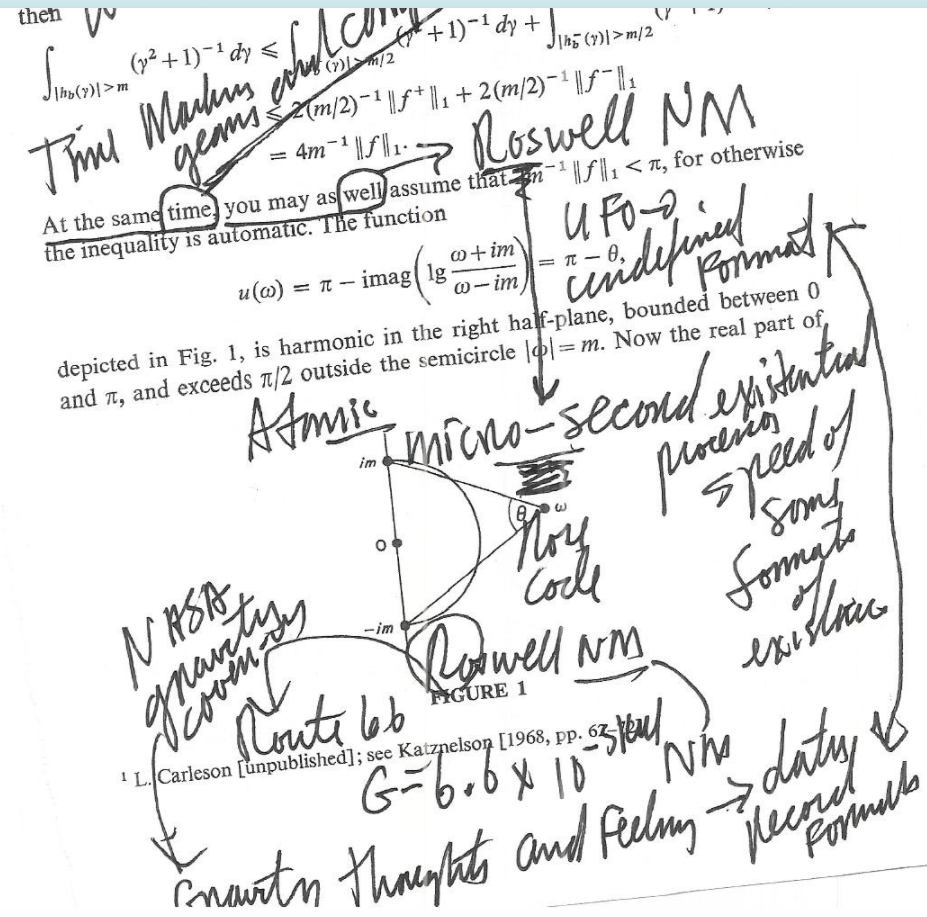 then
∫|hb(γ)|>m (γ² + 1)⁻¹ dγ ⩽ (γ² + 1)⁻¹ dγ + ∫|hb⁻(γ)|>m/2
Time Machine
gears
⩽ 2(m/2)⁻¹ ‖f⁺‖₁ + 2(m/2)⁻¹ ‖f⁻‖₁
= 4m⁻¹ ‖f‖₁. → Roswell NM
At the same time, you may as well assume that m⁻¹ ‖f‖₁ < π, for otherwise
the inequality is automatic. The function
UFO
undefined
Format
u(ω) = π − imag(lg ω + im / ω − im) = π − θ,
depicted in Fig. 1, is harmonic in the right half-plane, bounded between 0
and π, and exceeds π/2 outside the semicircle |ω| = m. Now the real part of
Atomic
micro-second existential
process
speed of
some
formats
of
existence
im
θ ω
0
More
Code
-im
NASA
gravity
Roswell NM
Route 66
FIGURE 1
¹ L. Carleson [unpublished]; see Katznelson [1968, pp. 62-
G = 6.6 x 10
NM
Gravity thoughts and feeling → data
record
formats